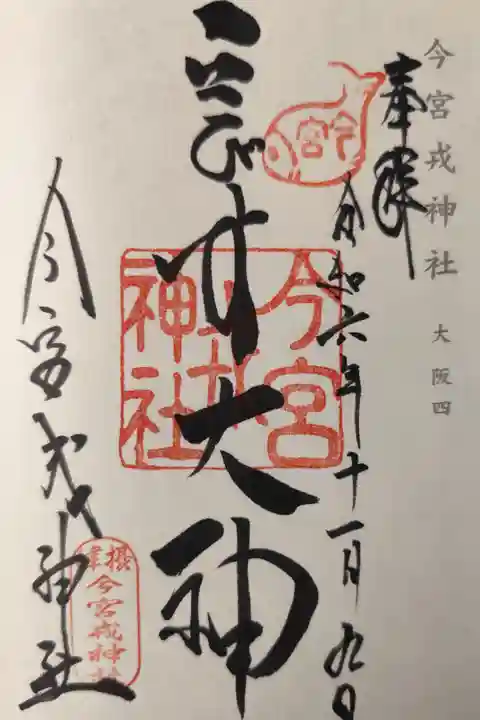 今宮戎神社 大阪四
奉拝
令和六年十一月九日
今宮
ゑびす大神
今宮戎神社
今宮戎神社
摂津
今宮戎神社